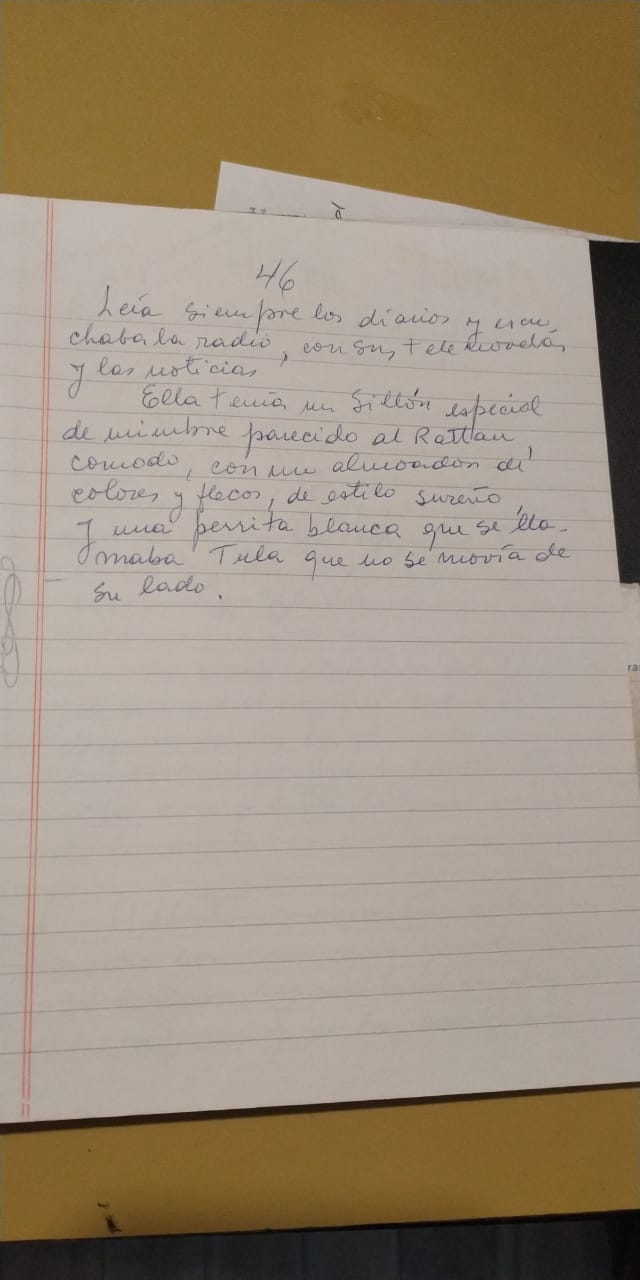 46
Leía siempre los diarios y escu
chaba la radio, con sus telenovelas
y las noticias
Ella tenía un Sillón especial
de mimbre parecido al Rattan,
comodo, con un almoadon de
colores y flecos, de estilo sureño,
y una perrita blanca que se lla-
maba Tula que no se movía de
su lado.